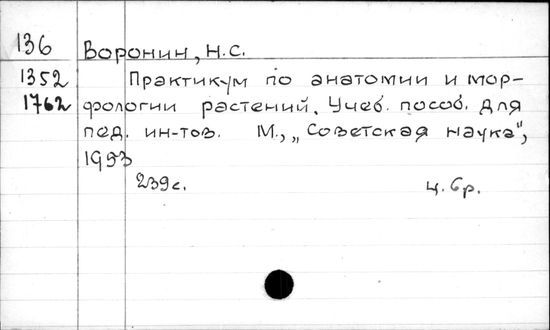 136
Воронин, Н.С.
1352
Практикум по анатомии и мор-
1762
фологии растений. Учеб. пособ. для
пед. ин-тов. М., „Советская наука",
1953
239с. ц. 6р.